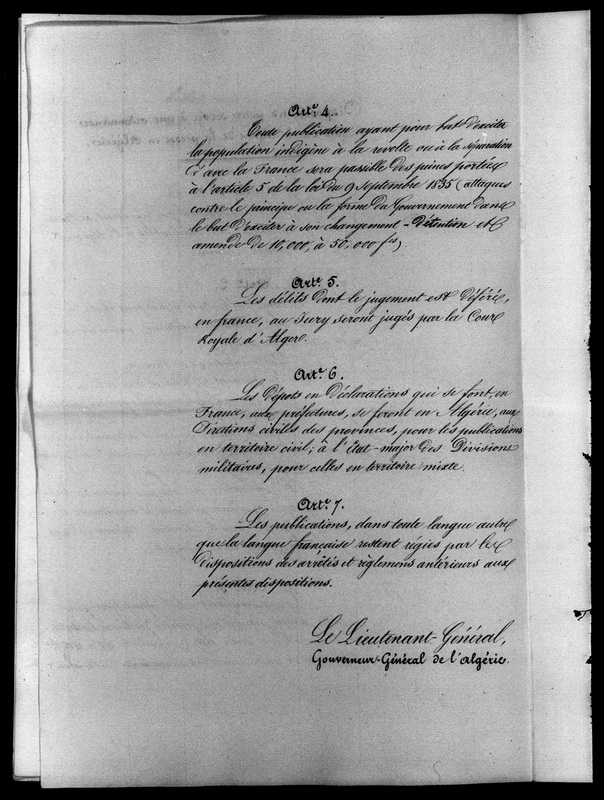 Art.e 4.
Toute publication ayant pour but d'exciter
la population indigène à la révolte ou à la séparation
d'avec la France sera passible des peines portées
à l'article 5 de la loi du 9 septembre 1835 (attaques
contre le principe ou la forme du Gouvernement dans
le but d'exciter à son changement - Détention et
amende de 10,000 à 50,000 frs)
Art.e 5.
Les délits dont le jugement est déféré,
en france, au Jury seront jugés par la Cour
Royale d'Alger.
Art.e 6.
Les dépots en déclarations qui se font, en
France, aux préfectures, se feront en Algérie, aux
Directions civiles des provinces, pour les publications
en territoire civil; à l'état-major des Divisions
militaires, pour celles en territoire mixte.
Art.e 7.
Les publications, dans toute langue autre
que la langue francaise restent régies par les
dispositions des arrêtés et règlemens antérieurs aux
présentes dispositions.
Le Lieutenant-Général,
Gouverneur-Général de l'Algérie.